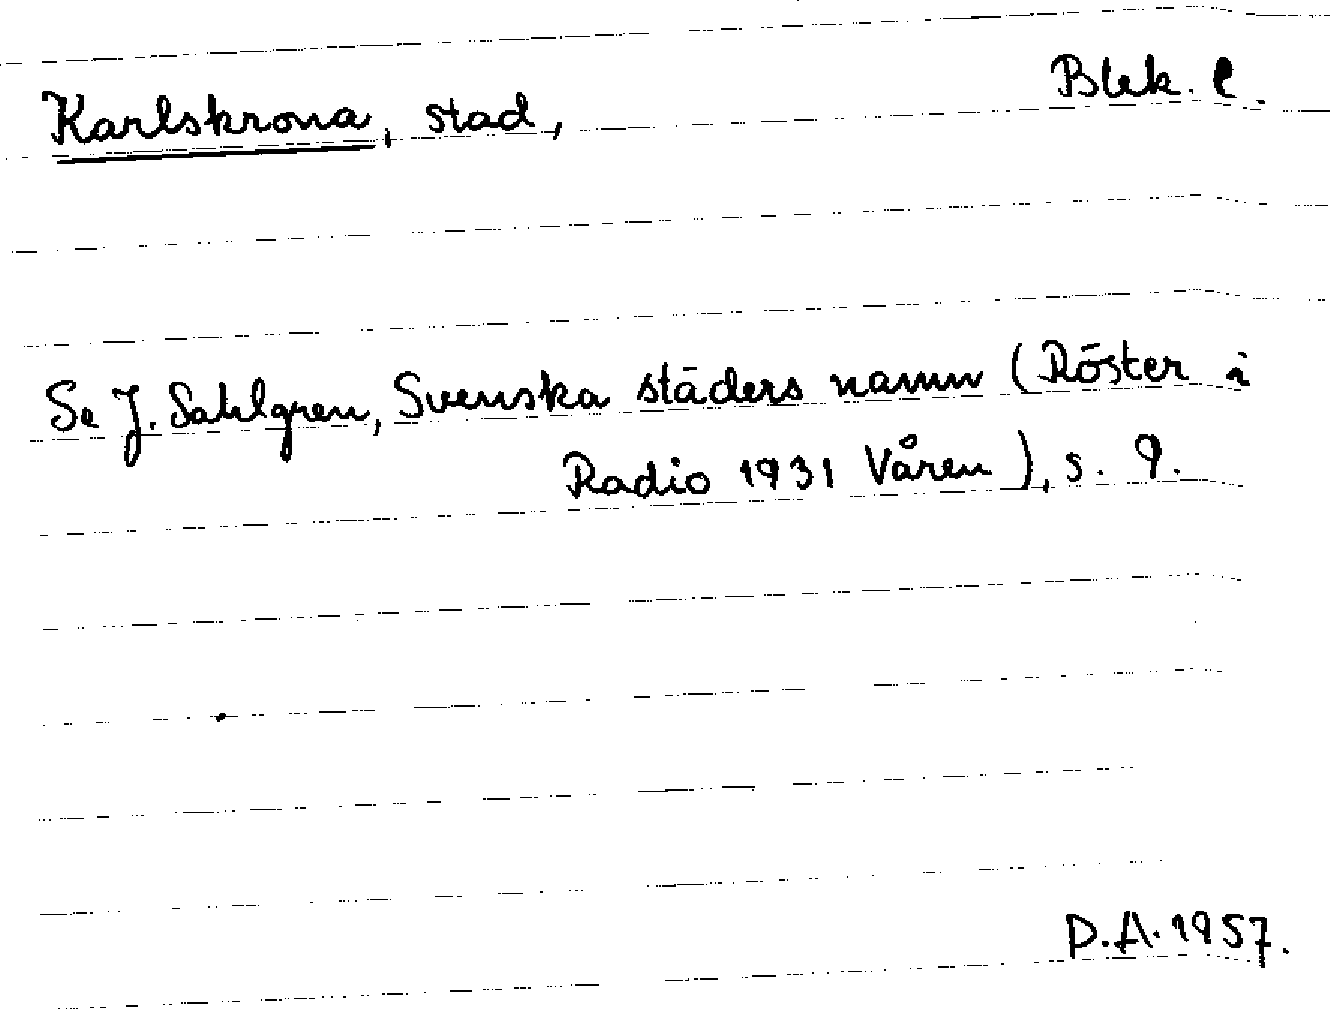 Karlskrona, stad, Blek. l.
Se J. Sahlgren, Svenska städers namn (Röster i
Radio 1931 Våren), s. 9.
D.A. 1957.